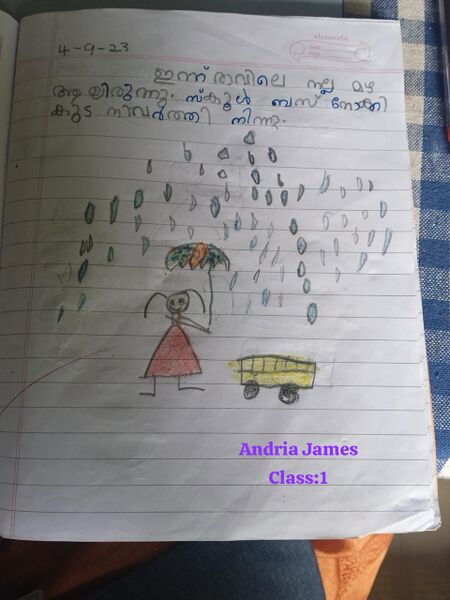 classmate
Date
Page
4-9-23
ഇന്ന് രാവിലെ നല്ല മഴ
ആയിരുന്നു. സ്കൂൾ ബസ് നോക്കി
കുട നിവർത്തി നിന്നു.
Andria James
Class:1